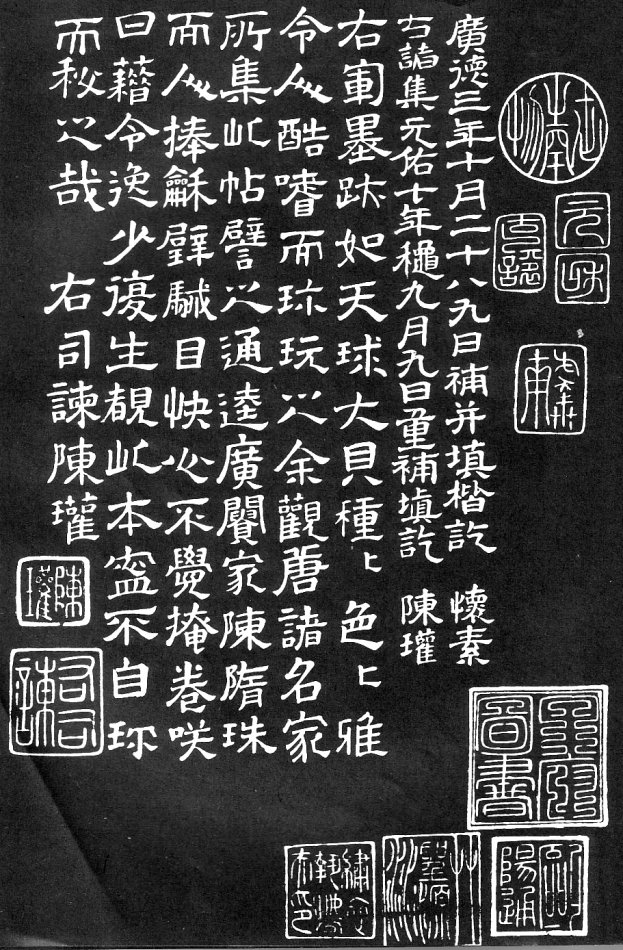 廣德三年十月二十八九日補并填楷訖 懷素
集元佑十年穐九月九日重補填訖 陳瓘
右軍墨跡如天球大貝種〻色〻雅
令人酷嗜而珎玩之余觀唐諸名家
所集此帖譬之通逵廣闤家陳隋珠
而人捧龢璧駴目快心不覺掩卷咲
曰藉令逸少復生覩此本寍不自珎
而秘之哉 右司諫陳瓘
元和
陳瓘
右司諫